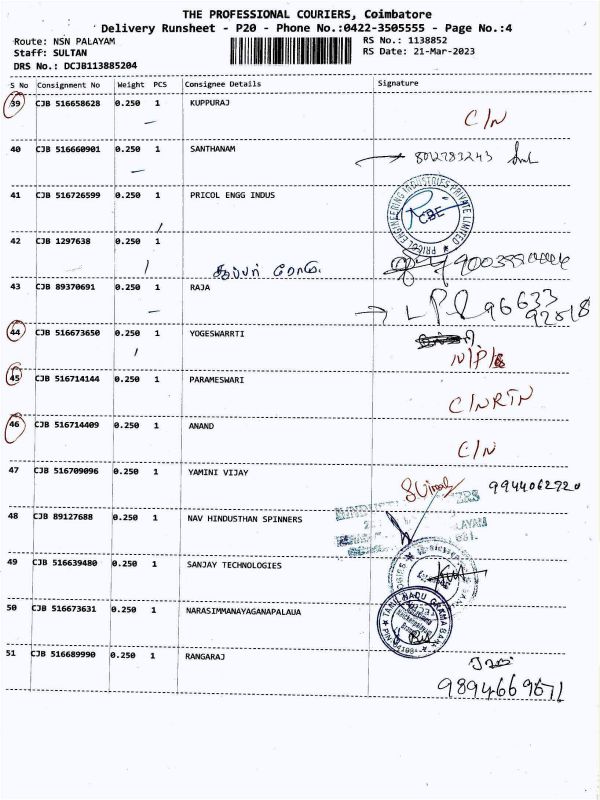 THE PROFESSIONAL COURIERS, Coimbatore
Delivery Runsheet - P20 - Phone No.:0422-3505555 - Page No.:4
Route: NSN PALAYAM RS No.: 1138852
Staff: SULTAN RS Date: 21-Mar-2023
DRS No.: DCJB113885204
S No Consignment No Weight PCS Consignee Details Signature
39 CJB 516658628 0.250 1 KUPPURAJ C/N
40 CJB 516660901 0.250 1 SANTHANAM
41 CJB 516726599 0.250 1 PRICOL ENGG INDUS PRICOL ENGINEERING INDUSTRIES PRIVATE LIMITED CBE
42 CJB 1297638 0.250 1
43 CJB 89370691 0.250 1 RAJA
44 CJB 516673650 0.250 1 YOGESWARRTI
45 CJB 516714144 0.250 1 PARAMESWARI C/NRTN
46 CJB 516714409 0.250 1 ANAND C/N
47 CJB 516709096 0.250 1 YAMINI VIJAY 9944062720
48 CJB 89127688 0.250 1 NAV HINDUSTHAN SPINNERS
49 CJB 516639480 0.250 1 SANJAY TECHNOLOGIES
50 CJB 516673631 0.250 1 NARASIMMANAYAGANAPALAUA TAMIL NADU GRAMA BANK
51 CJB 516689990 0.250 1 RANGARAJ
9894669671